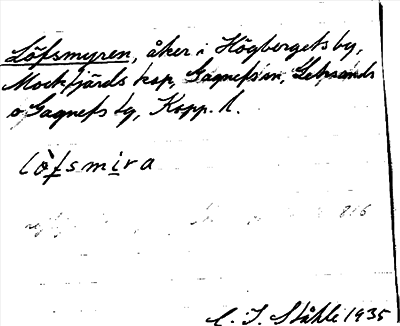 Löfsmyren, åker i Högbergets by,
Mockfjärds kap, Gagnefs sn, Leksands
o Gagnefs tg, Kopp. l.
lòfsmira
C. I. Ståhle 1935